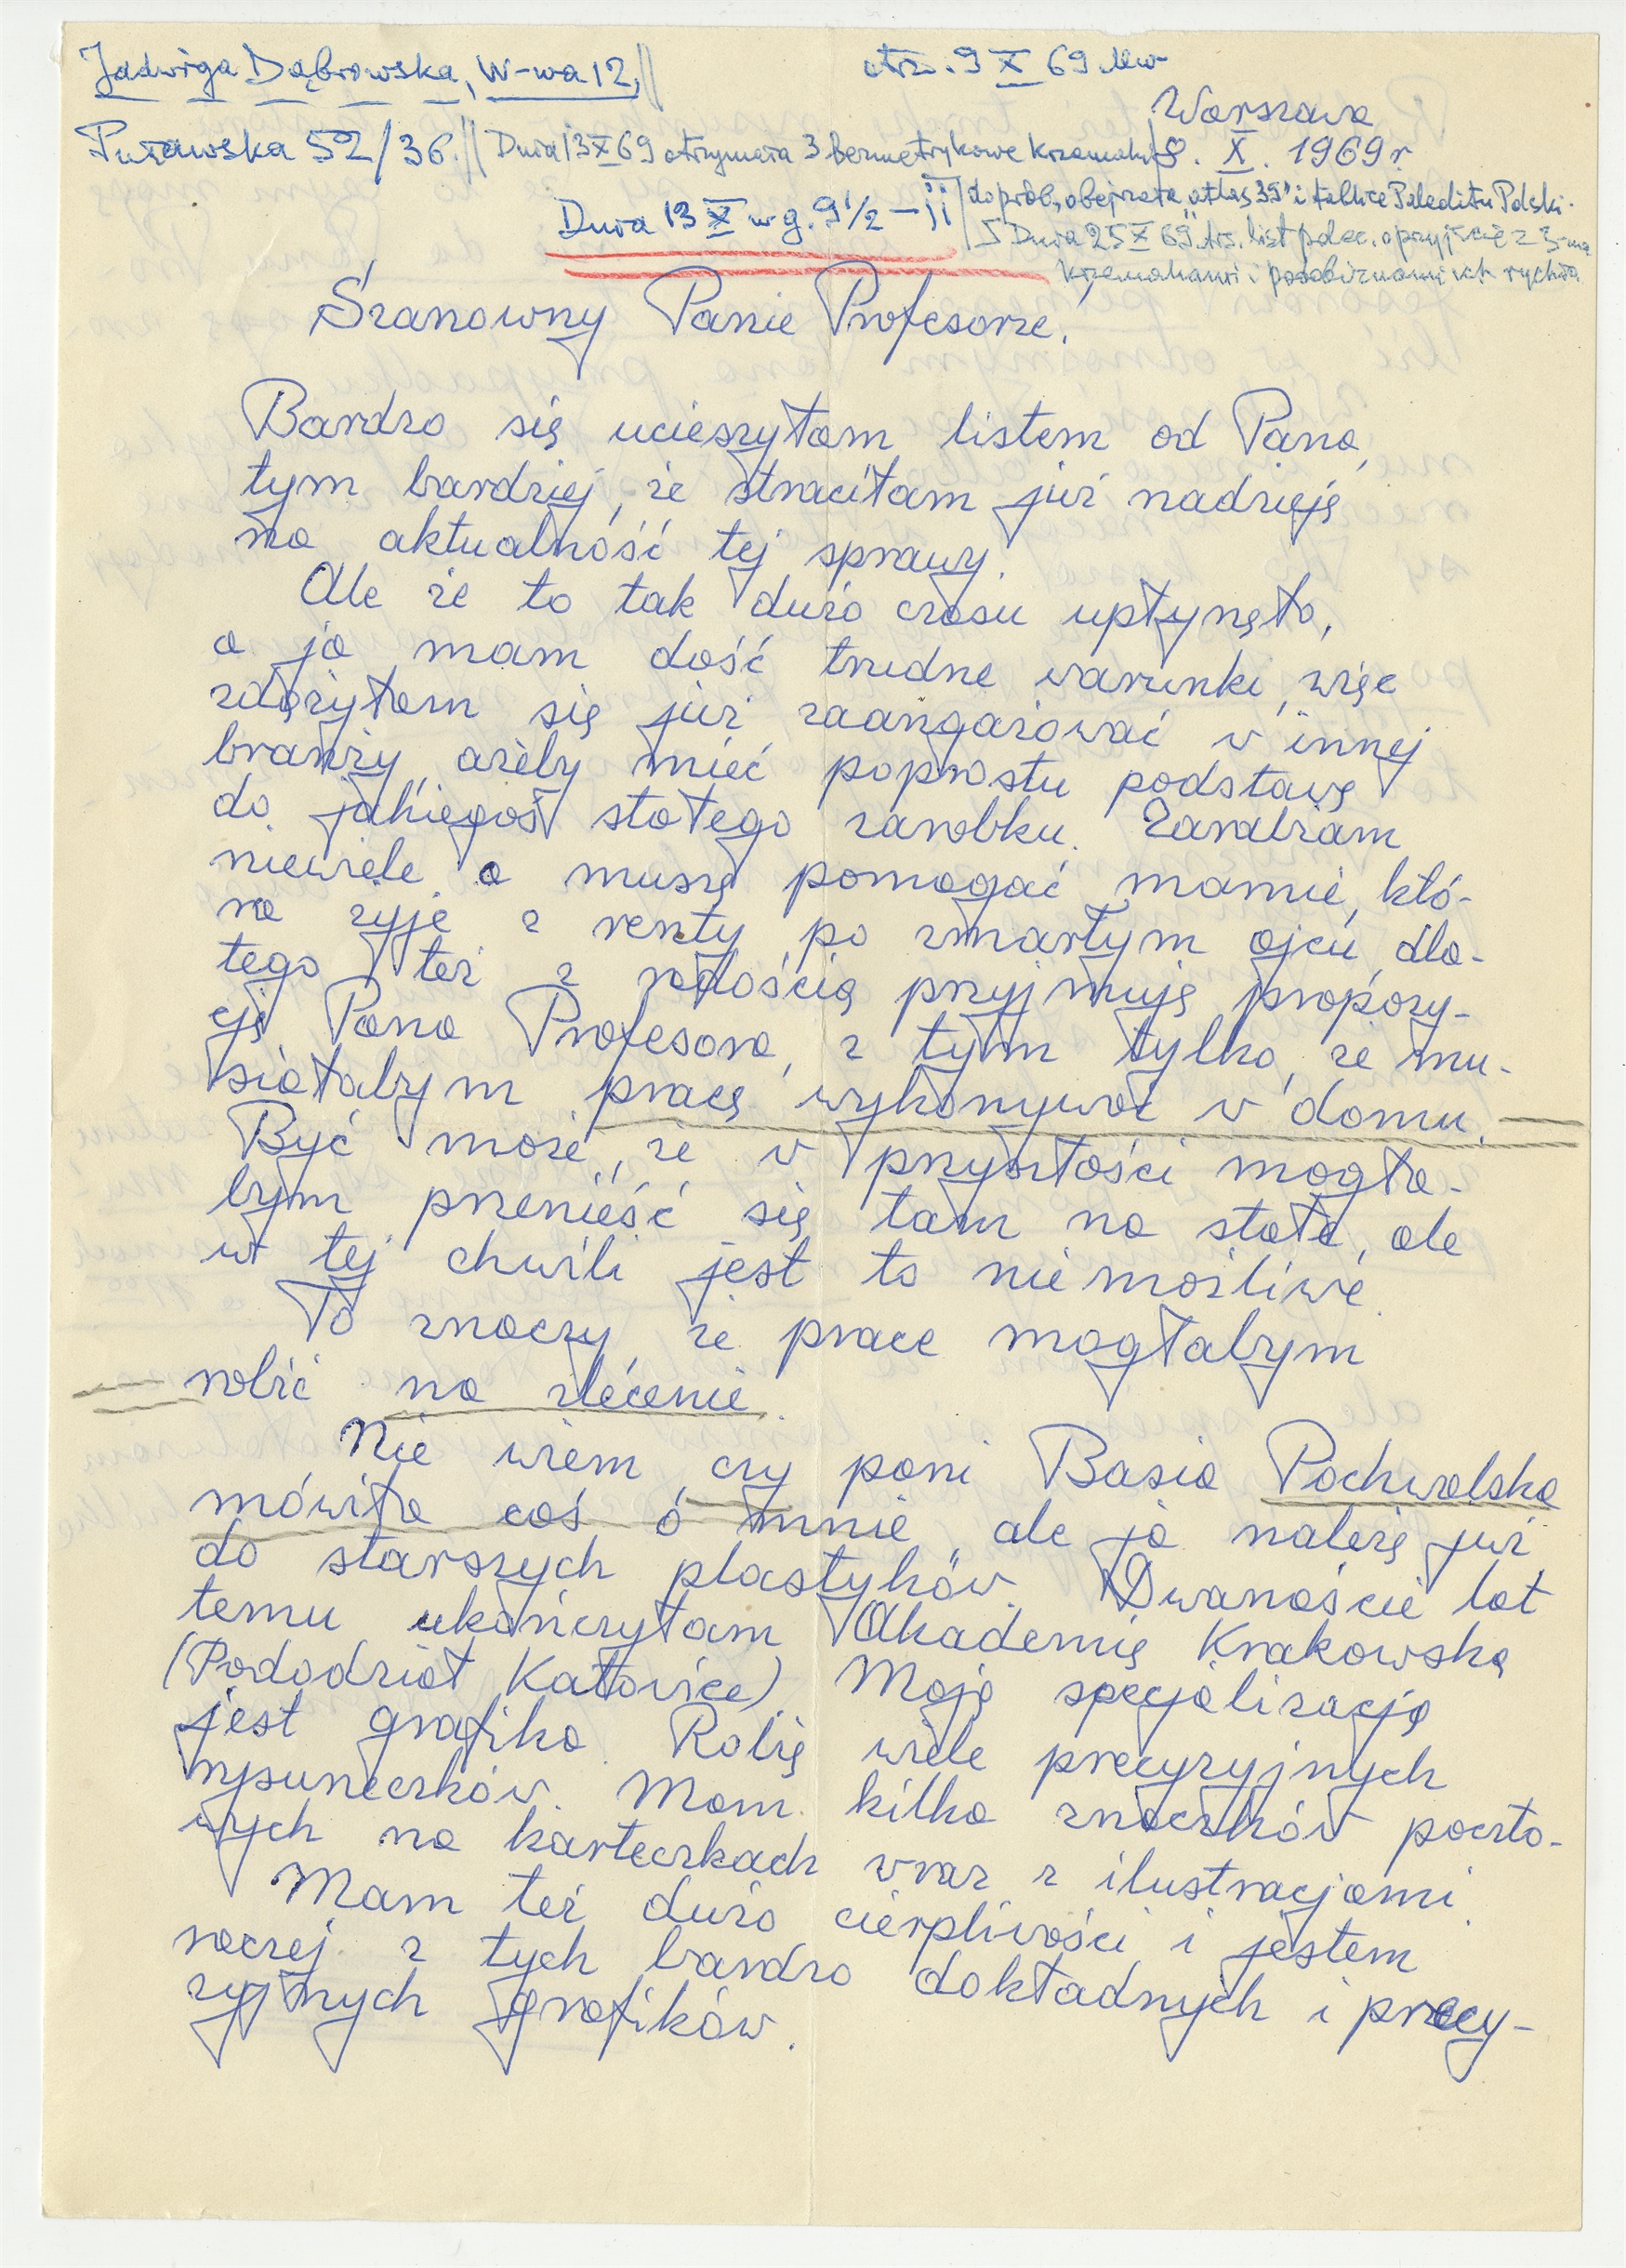 Jadwiga Dąbrowska, W-wa 12,
otrz. 9 X 69
Warszawa
Puławska 52/36.
8. X. 1969 r
Dnia 13 X 69 otrzymała 3 bezmetrykowe krzemaki
do prób, obejrzała "atlas 39" i tablice Paleolitu Polski.
Dnia 13 X w g. 9 1/2 – jj
Dnia 25 X 69 list polec. o przyjście z 3-ma
krzemakami i podobiznami ich
Szanowny Panie Profesorze.
Bardzo się ucieszyłam listem od Pana,
tym bardziej, że straciłam już nadzieję
na aktualność tej sprawy.
Ale że to tak dużo czasu upłynęło,
a ja mam dość trudne warunki, więc
zdążyłam się już zaangażować w innej
branży, ażeby mieć poprostu podstawę
do jakiegoś stałego zarobku. Zarabiam
niewiele a muszę pomagać mamie, któ-
ra żyje z renty po zmarłym ojcu, dla-
tego też z radością przyjmuję propozy-
cję Pana Profesora, z tym tylko, że mu-
siałabym pracę wykonywać w domu.
Być może, że w przyszłości mogła-
bym przenieść się tam na stałe, ale
w tej chwili jest to niemożliwe.
To znaczy, że prace mogłabym
robić na zlecenie.
Nie wiem, czy pani Basia Pochwalska
mówiła coś o mnie, ale ja należę już
do starszych plastyków. Dwanaście lat
temu ukończyłam Akademię Krakowską
(Pododział Katowice). Moją specjalizacją
jest grafika. Robię wiele precyzyjnych
rysuneczków. Mam kilka znaczków poczto-
wych na karteczkach wraz z ilustracjami.
Mam też dużo cierpliwości i jestem
raczej z tych bardzo dokładnych i precy-
zyjnych grafików.